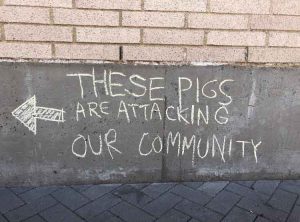 THESE PIGS
ARE ATTACKING
OUR COMMUNITY